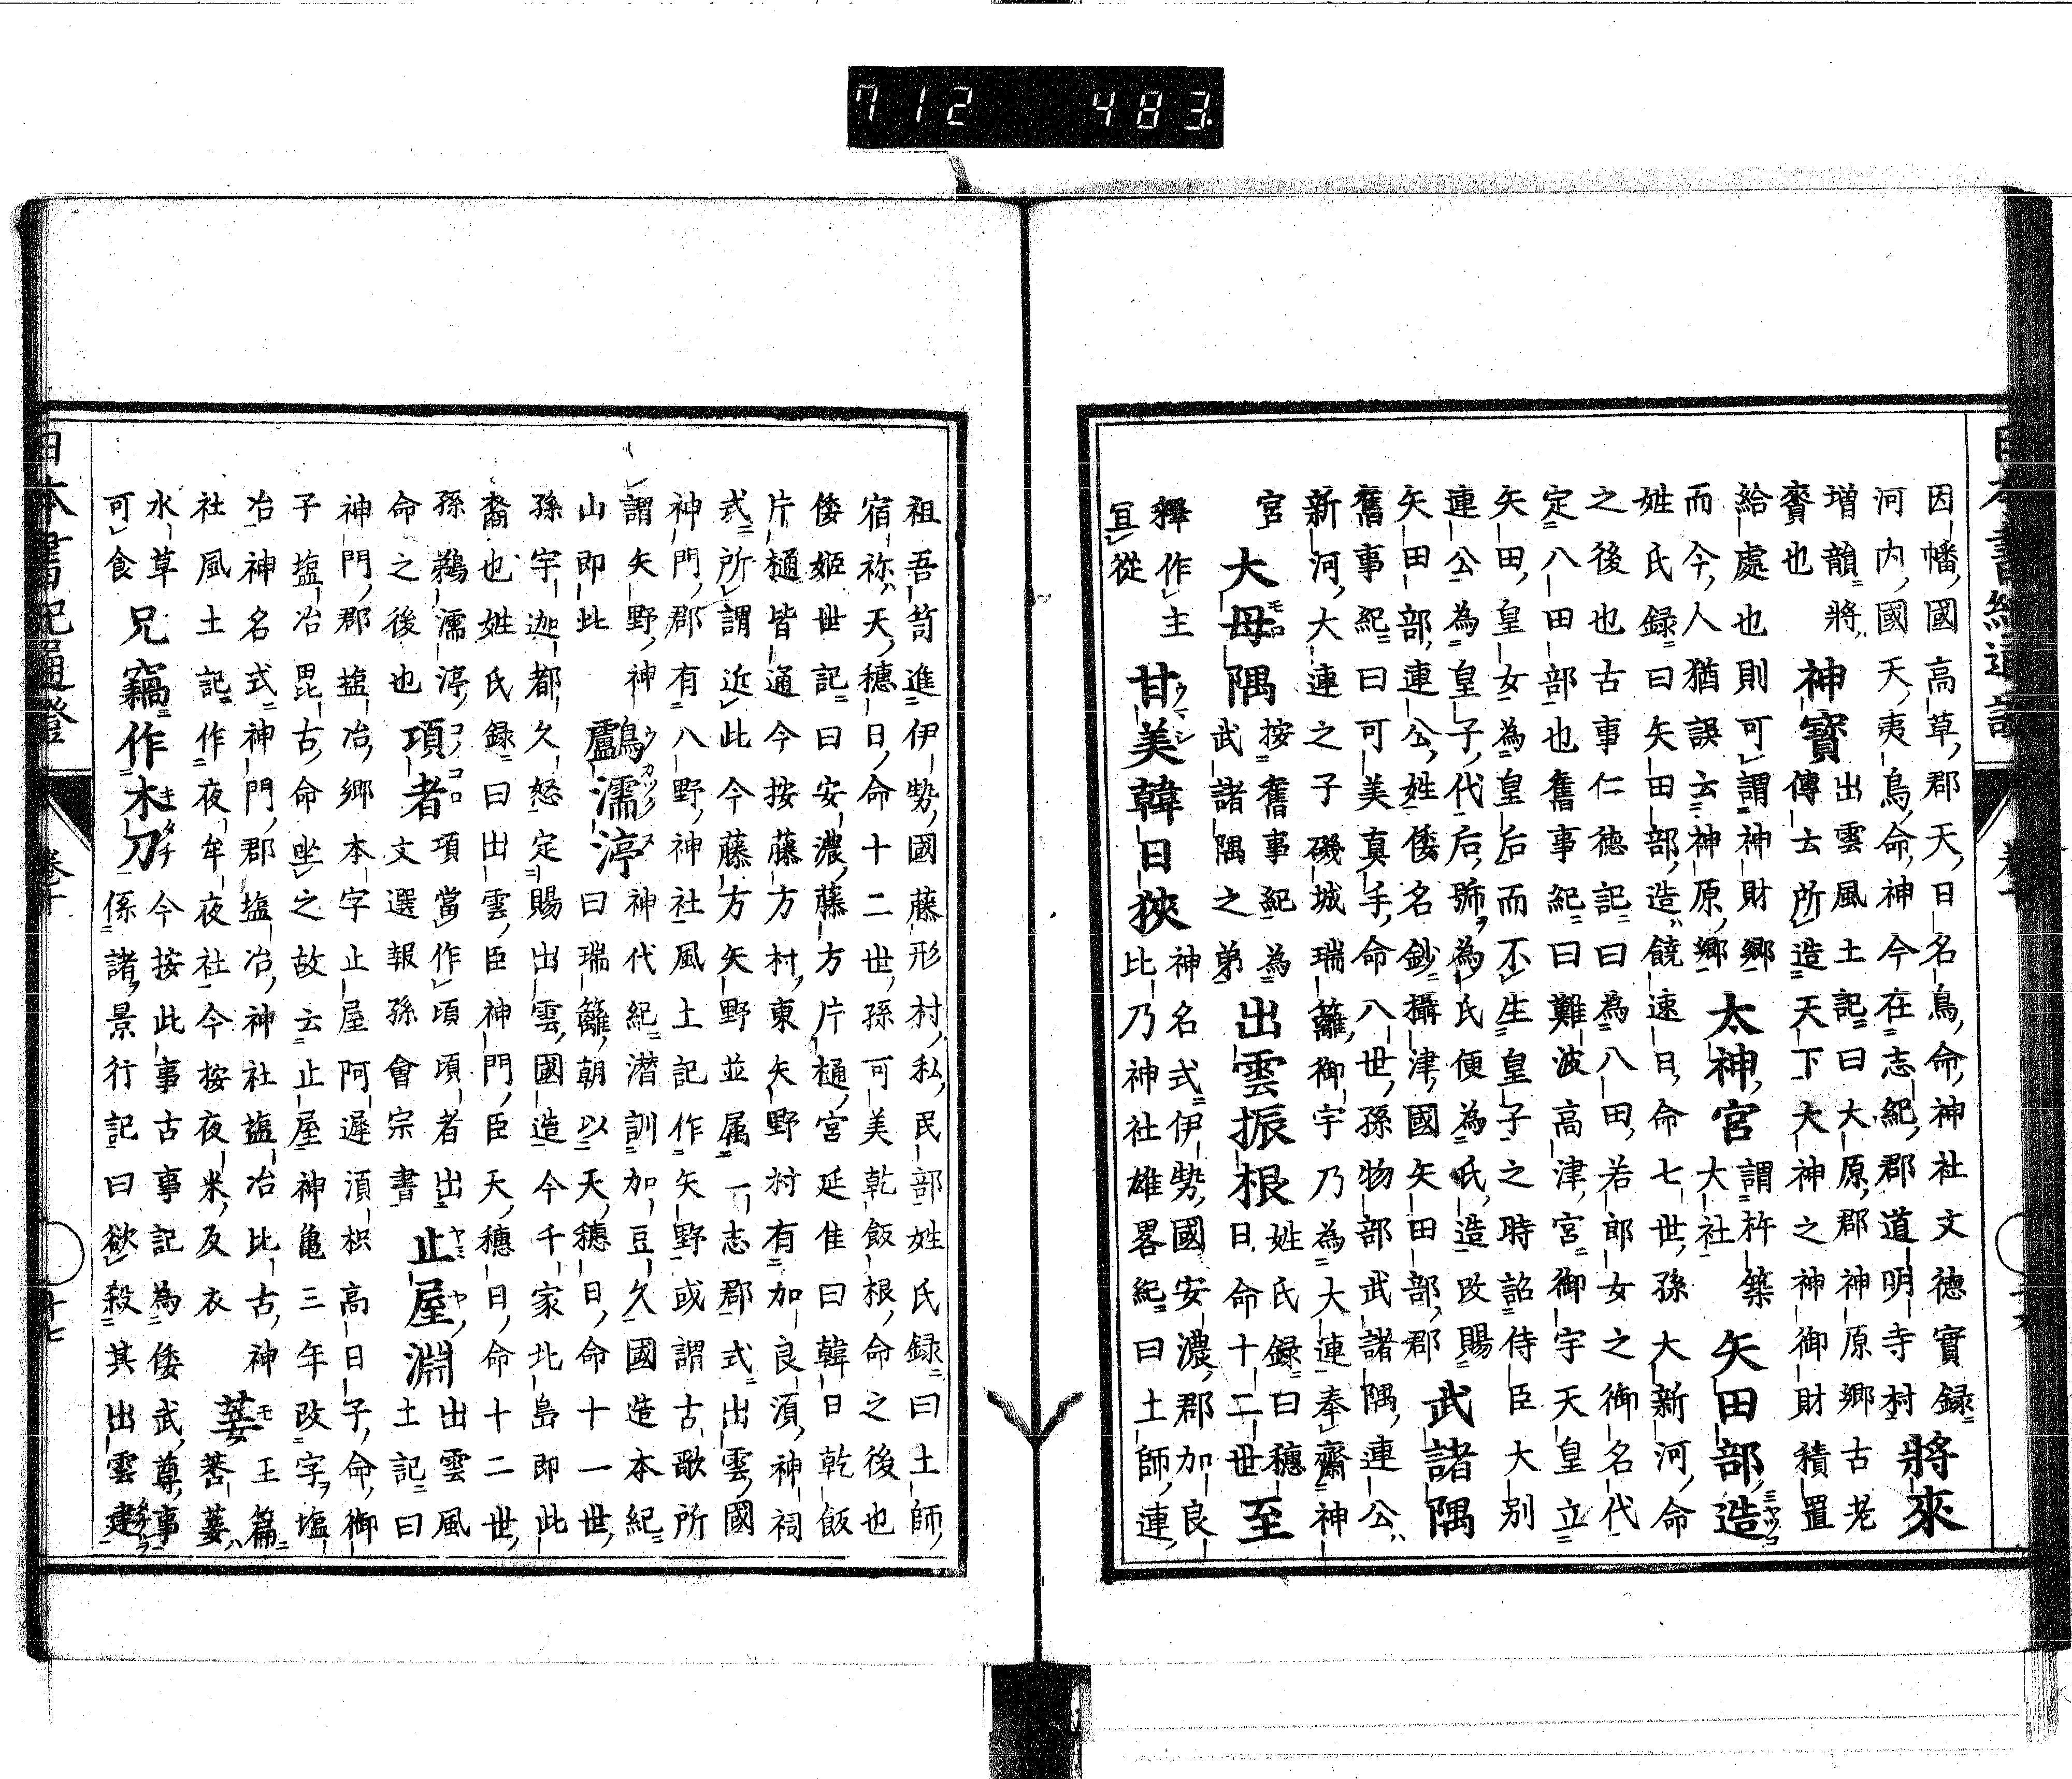 因幡國高草郡天日名鳥命神社文徳實録
河内國天夷鳥命神今在志紀郡道明寺村
將來
增韻將
賚也
神寶
出雲風土記曰大原郡神原郷古老
傳云所造天下大神之神御財積置
給處也則可謂神財郷
而今人猶誤云神原郷
太神宮
謂杵築
大社
矢田部造
姓氏録曰矢田部造饒速日命七世孫大新河命
之後也古事仁徳記曰為八田若郎女之御名代
定八田部也舊事紀曰難波高津宮御宇天皇立
矢田皇女為皇后而不生皇子之時詔侍臣大別
連公為皇子代后號為氏便為氏造改賜
矢田部連公姓倭名鈔攝津國矢田部郡
武諸隅
舊事紀曰可美真手命八世孫物部武諸隅連公
新河大連之子磯城瑞籬御宇乃為大連奉齋神
宮
大母隅
按舊事紀為
武諸隅之弟
出雲振根
姓氏録曰穗
日命十二世
至
釋作主
宜從
甘美韓日狹
神名式伊勢國安濃郡加良
比乃神社雄畧紀曰土師連
祖吾笥進伊勢國藤形村私民部姓氏録曰土師
宿祢天穗日命十二世孫可美乾飯根命之後也
倭姬世記曰安濃藤方片樋宮延佳曰韓日乾飯
片樋皆通今按藤方村東矢野村有加良須神祠
式所謂近此今藤方矢野並属一志郡式出雲國
神門郡有八野神社風土記作矢野或謂古歌所
謂矢野神
山即此
鸕濡渟
神代紀潜訓加豆久國造本紀
曰瑞籬朝以天穗日命十一世
孫宇迦都久怒定賜出雲國造今千家北島即此
裔也姓氏録曰出雲臣神門臣天穗日命十二世
孫鵜濡渟
命之後也
項者
項當作頃頃者出
文選報孫會宗書
止屋淵
出雲風
土記曰
神門郡塩冶郷本字止屋阿遲須枳高日子命御
子塩冶毘古命坐之故云止屋神亀三年改字塩
冶神名式神門郡塩冶神社塩冶比古神
社風土記作夜牟夜社今按夜米反衣
萎
玉篇
莕萎
水草
可食
兄竊作木刀
今按此事古事記為倭武尊事
係諸景行記曰欲殺其出雲建